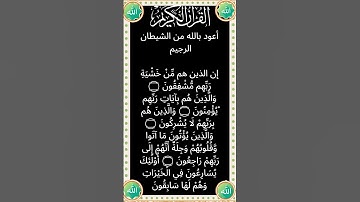 القرآن الكريم
الله
الله
أعود بالله من الشيطان
الرجيم
إن الذين هم مِّنْ خَشْيَةِ
رَبِّهِم مُّشْفِقُونَ ۝
وَالَّذِينَ هُم بِآيَاتِ رَبِّهِمْ
يُؤْمِنُونَ ۝ وَالَّذِينَ هُم
بِرَبِّهِمْ لَا يُشْرِكُونَ ۝
وَالَّذِينَ يُؤْتُونَ مَا آتَوا
وَّقُلُوبُهُمْ وَجِلَةٌ أَنَّهُمْ إِلَى
رَبِّهِمْ رَاجِعُونَ ۝ أُوْلَٰئِكَ
يُسَارِعُونَ فِي الْخَيْرَاتِ
وَهُمْ لَهَا سَابِقُونَ
الله
الله